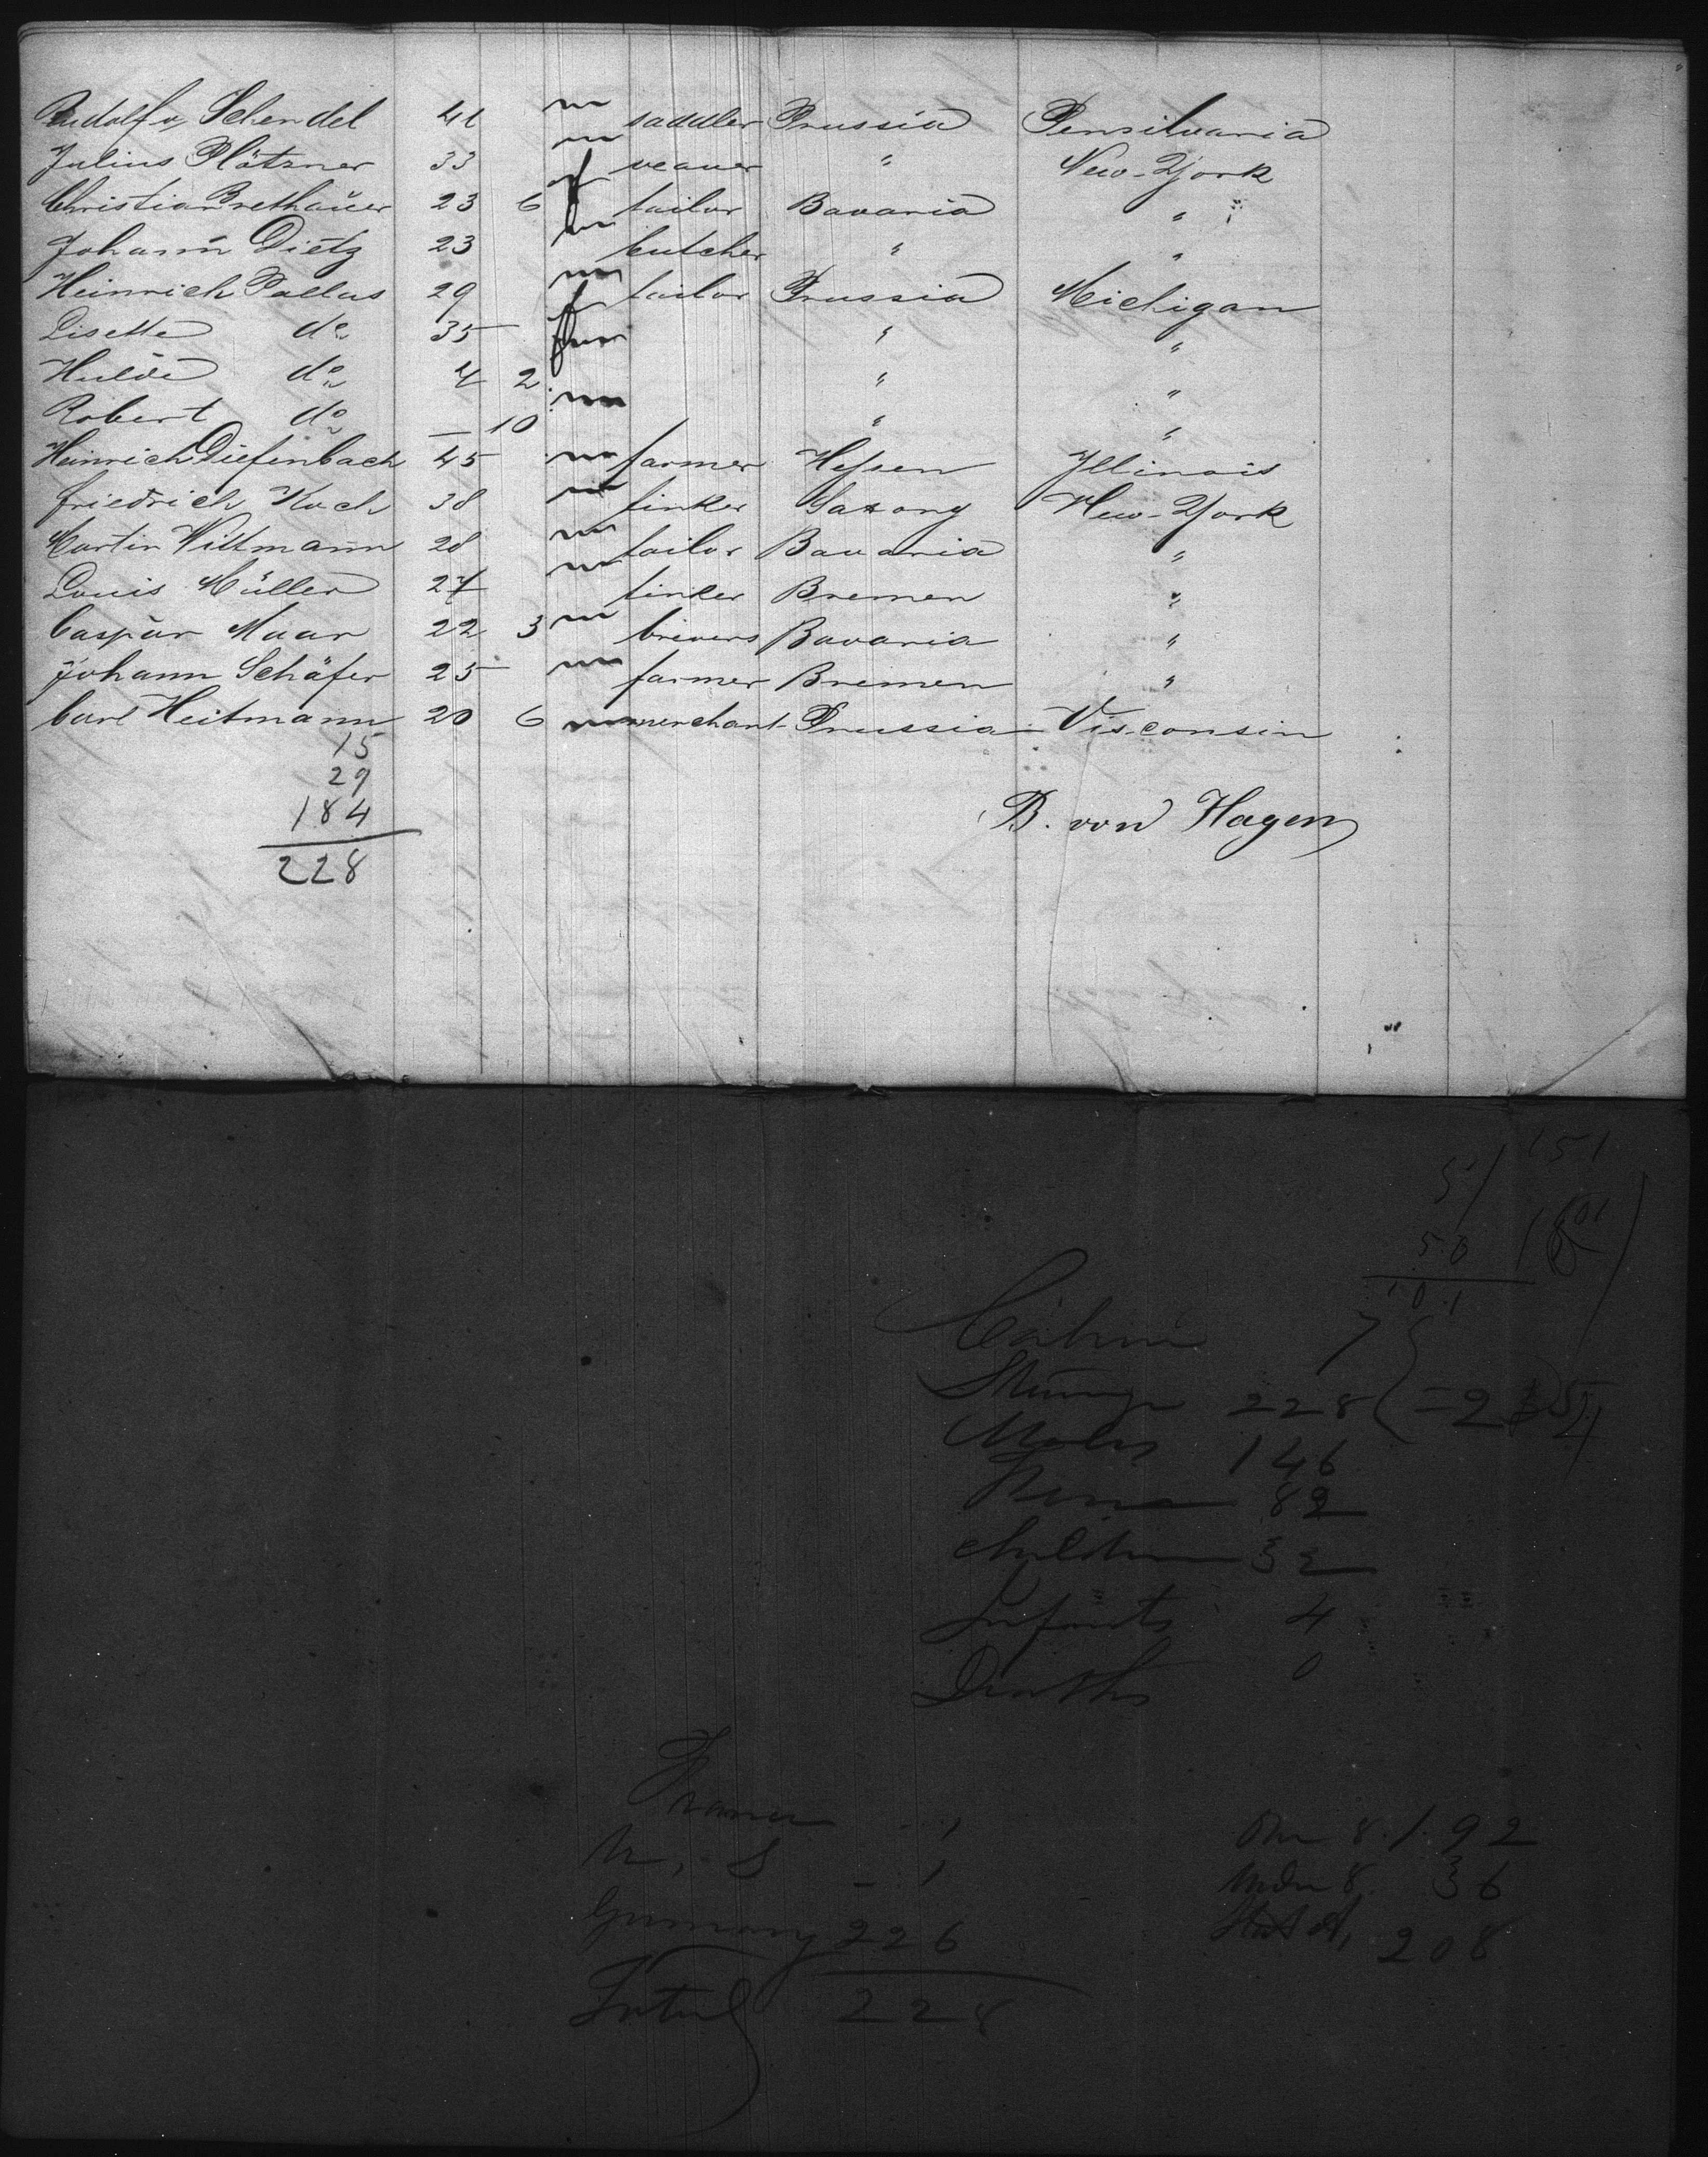 Rudolf v. Schendel 41 m saddler Prussia Pensilvania
Julius Plötzner 33 m veaver " New-York
Christian Brethauer 23 6 tailor Bavaria "
Johann Dietz 23 m butcher " "
Heinrich Pallas 29 m tailor Prussia Michigan
Lisette do 35 f " "
Hulda do 4 2 " "
Robert do — 10 m " "
Heinrich Diefenbach 45 m farmer Hessen Illinois
Friedrich Koch 38 m tinker Saxony New-York
Martin Wittmann 28 m tailor Bavaria "
Louis Müller 27 m tinker Bremen "
Caspar Maar 22 3 m brivers Bavaria "
Johann Schäfer 25 m farmer Bremen "
Carl Heitmann 20 6 m merchant Prussia Visconsin
15
29
184
228
B. von Hagen
151
51
50
101
Cabin 7
Steerage 228 = 235
Males 146
82
Children 32
Infants 4
Deaths 0
France 1
U. S — 1
Germany 226
Total 228
Over 8. 192
Under 8. 36
208